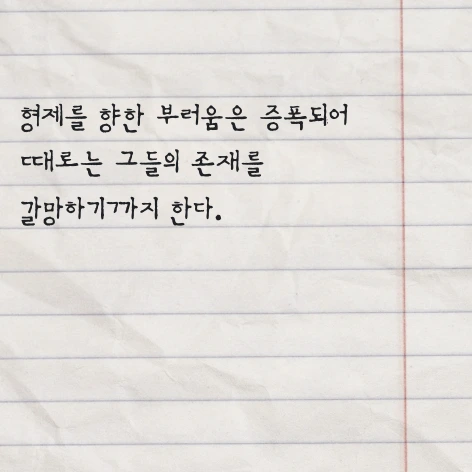 형제를 향한 부러움은 증폭되어
때로는 그들의 존재를
갈망하기까지 한다.